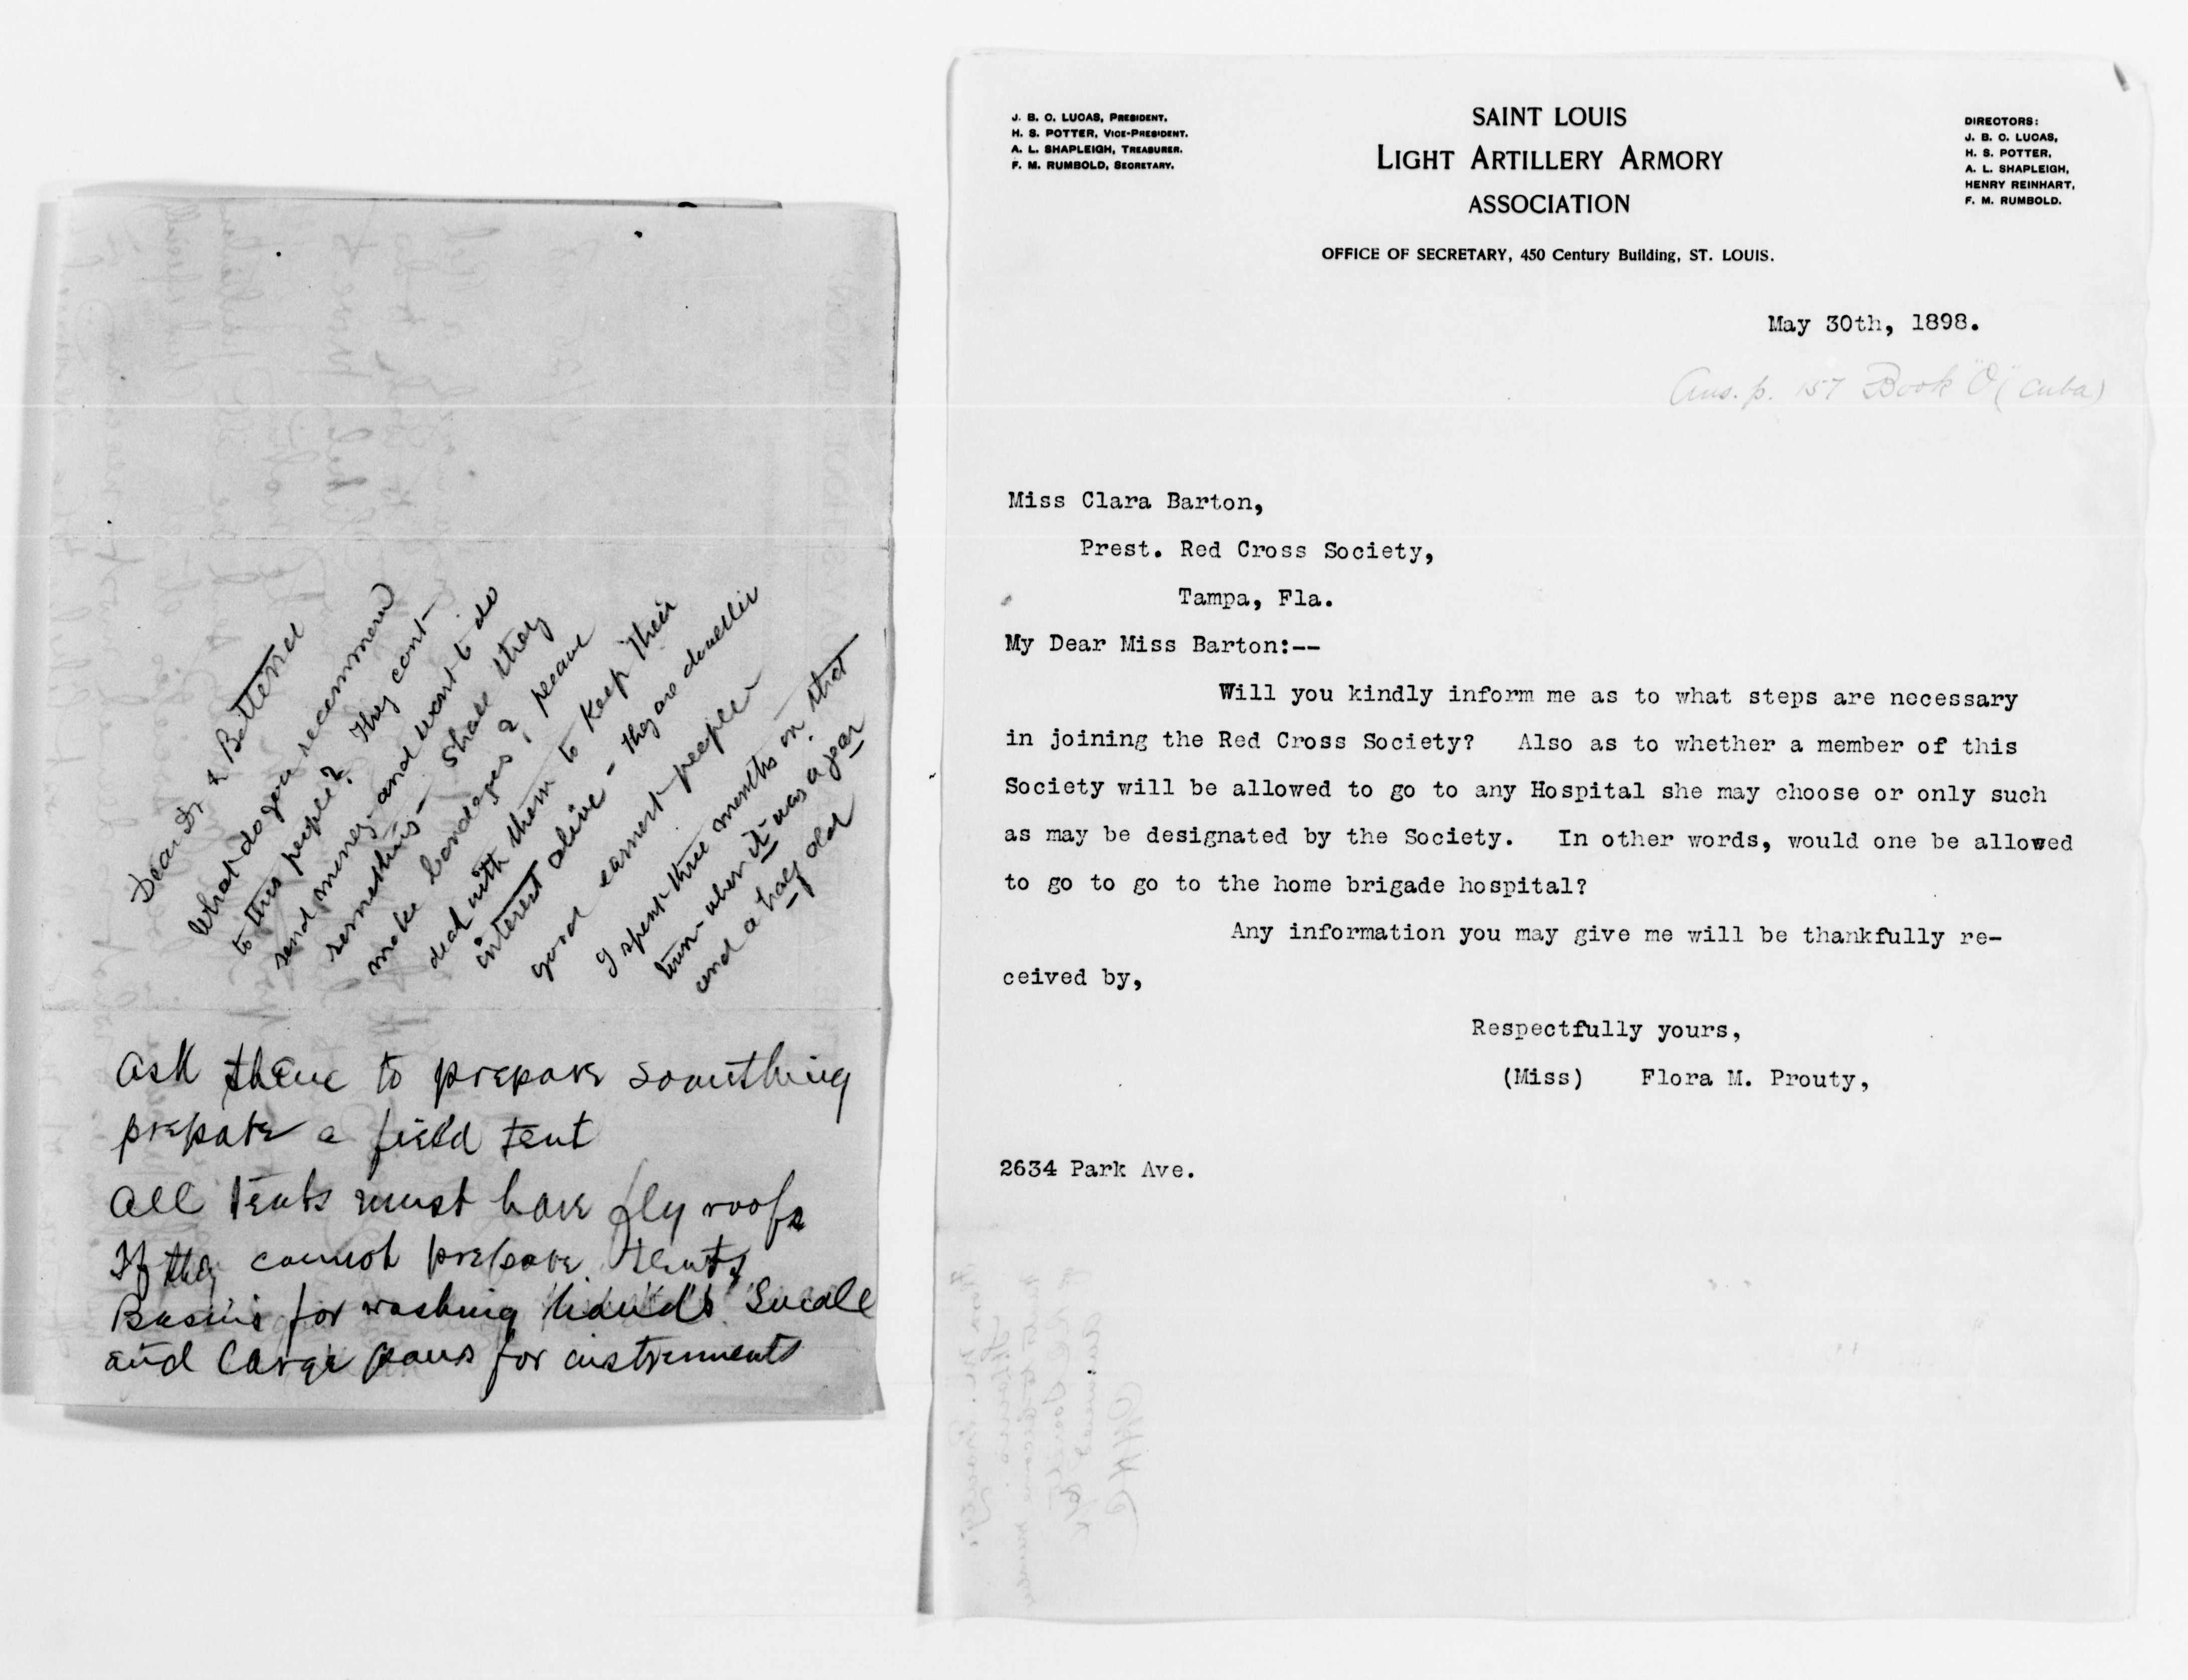 Dear Dr & Bettersel
What do you recommend
to this people? They cant
send money - and want to do
something - Shall they
make bandages? please
deal with them to keep their
interest alive - they are
good earnest people
I spent three months in that
town - when it was a year
and a half old
Ask them to prepare something
prepare a field tent
All tents must have fly roofs
If they cannot prepare tents
Basins for washing hands Small
and large pans for instruments
J. B. C. LUCAS, PRESIDENT.
H. S. POTTER, VICE-PRESIDENT.
A. L. SHAPLEIGH, TREASURER.
F. M. RUMBOLD, SECRETARY.
SAINT LOUIS
LIGHT ARTILLERY ARMORY
ASSOCIATION
OFFICE OF SECRETARY, 450 Century Building, ST. LOUIS.
DIRECTORS:
J. B. C. LUCAS,
H. S. POTTER,
A. L. SHAPLEIGH,
HENRY REINHART,
F. M. RUMBOLD.
May 30th, 1898.
Ans. p. 157 Book "O" (Cuba)
Miss Clara Barton,
Prest. Red Cross Society,
Tampa, Fla.
My Dear Miss Barton:--
Will you kindly inform me as to what steps are necessary
in joining the Red Cross Society? Also as to whether a member of this
Society will be allowed to go to any Hospital she may choose or only such
as may be designated by the Society. In other words, would one be allowed
to go to go to the home brigade hospital?
Any information you may give me will be thankfully re-
ceived by,
Respectfully yours,
(Miss) Flora M. Prouty,
2634 Park Ave.